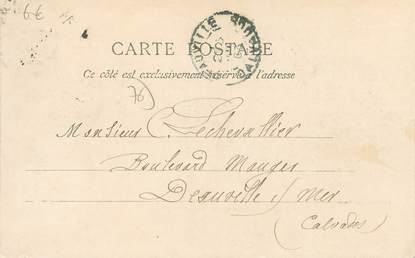 66
CARTE POSTALE
Ce côté est exclusivement réservé à l'adresse
76
Monsieur C. Lechevallier
Boulevard Mauger
Deauville s/ Mer
(Calvados)